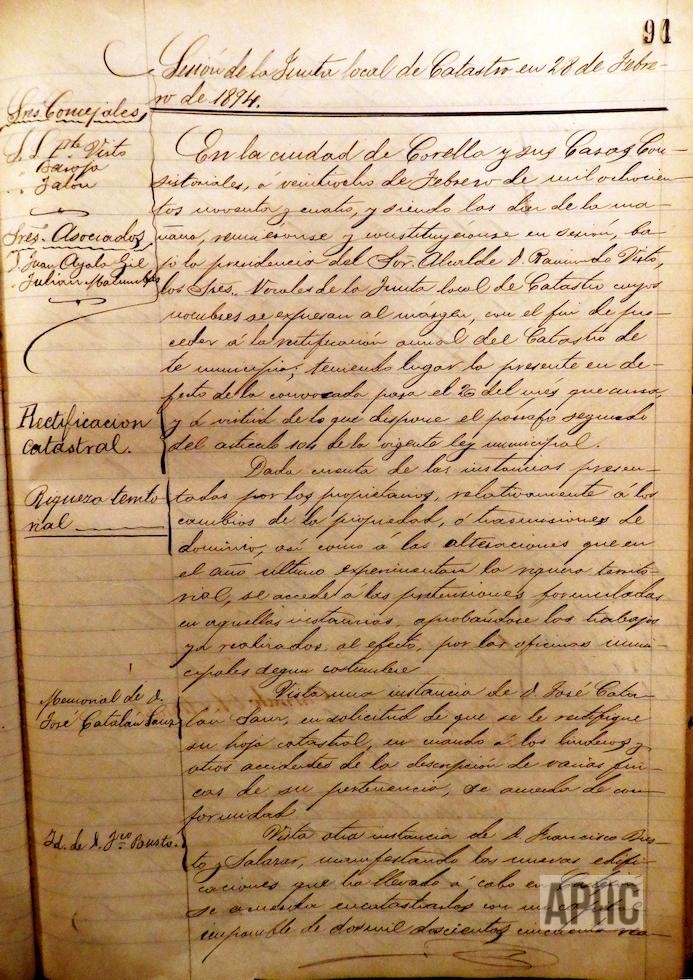 91
Sesión de la Junta local de Catastro en 28 de Febre-
ro de 1894.
Sres. Concejales,
S. S. pte. Virto
Baroja
Jalón
Sres. Asociados,
D. Juan Ayala Gil
" Julián
Rectificacion
catastral.
Riqueza territo-
rial
Memorial de D.
José Catalán Sanz
Id. de D. Fco. Busto.
En la ciudad de Corella y sus Casas Con-
sistoriales, á veintiocho de Febrero de mil ochocien-
tos noventa y cuatro, y siendo las diez de la ma-
ñana, reuniéronse y constituyeronse en sesión, ba-
jo la presidencia del Sor. Alcalde D. Raimundo Virto,
los Sres. Vocales de la Junta local de Catastro cuyos
nombres se expresan al margen, con el fin de pro-
ceder á la rectificación anual del Catastro de
te municipio; teniendo lugar la presente en de-
fecto de la convocada para el 26 del mes que cursa,
y á virtud de lo que dispone el párrafo segundo
del artículo 104 de la vigente ley municipal.
Dada cuenta de las instancias presen-
tadas por los propietarios, relativamente á los
cambios de la propiedad, ó trasmisiones de
dominio, así como á las alteraciones que en
el año ultimo experimentara la riqueza territo-
rial, se accede á las pretensiones formuladas
en aquellas instancias, aprobándose los trabajos
ya realizados al efecto, por las oficinas muni-
cipales segun costumbre
Vista una instancia de D. José Cata-
lan Sanz, en solicitud de que se le rectifique
su hoja catastral, en cuanto á los linderos y
otros accidentes de la descripción de varias fin-
cas de su pertenencia, se acuerda de con-
formidad
Vista otra instancia de D. Francisco Bus-
to y Salazar, manifestando las nuevas edifi-
caciones que ha llevado á cabo en
se acuerda encatastrarlas con un
imponible de dos mil doscientas cincuenta
APHC